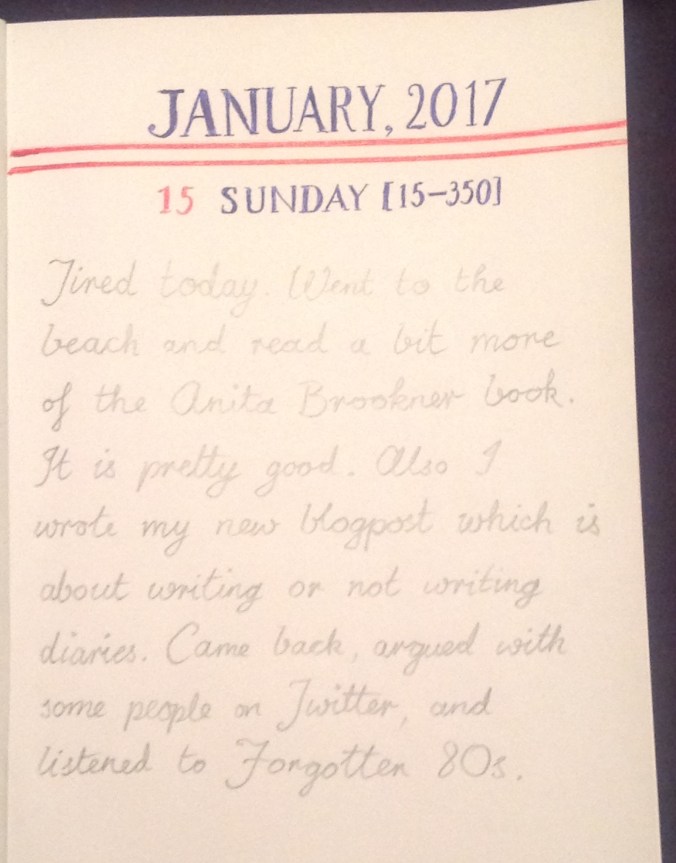 JANUARY, 2017
15 SUNDAY [15-350]
Tired today. Went to the
beach and read a bit more
of the Anita Brookner book.
It is pretty good. Also I
wrote my new blogpost which is
about writing or not writing
diaries. Came back, argued with
some people on Twitter, and
listened to Forgotten 80s.